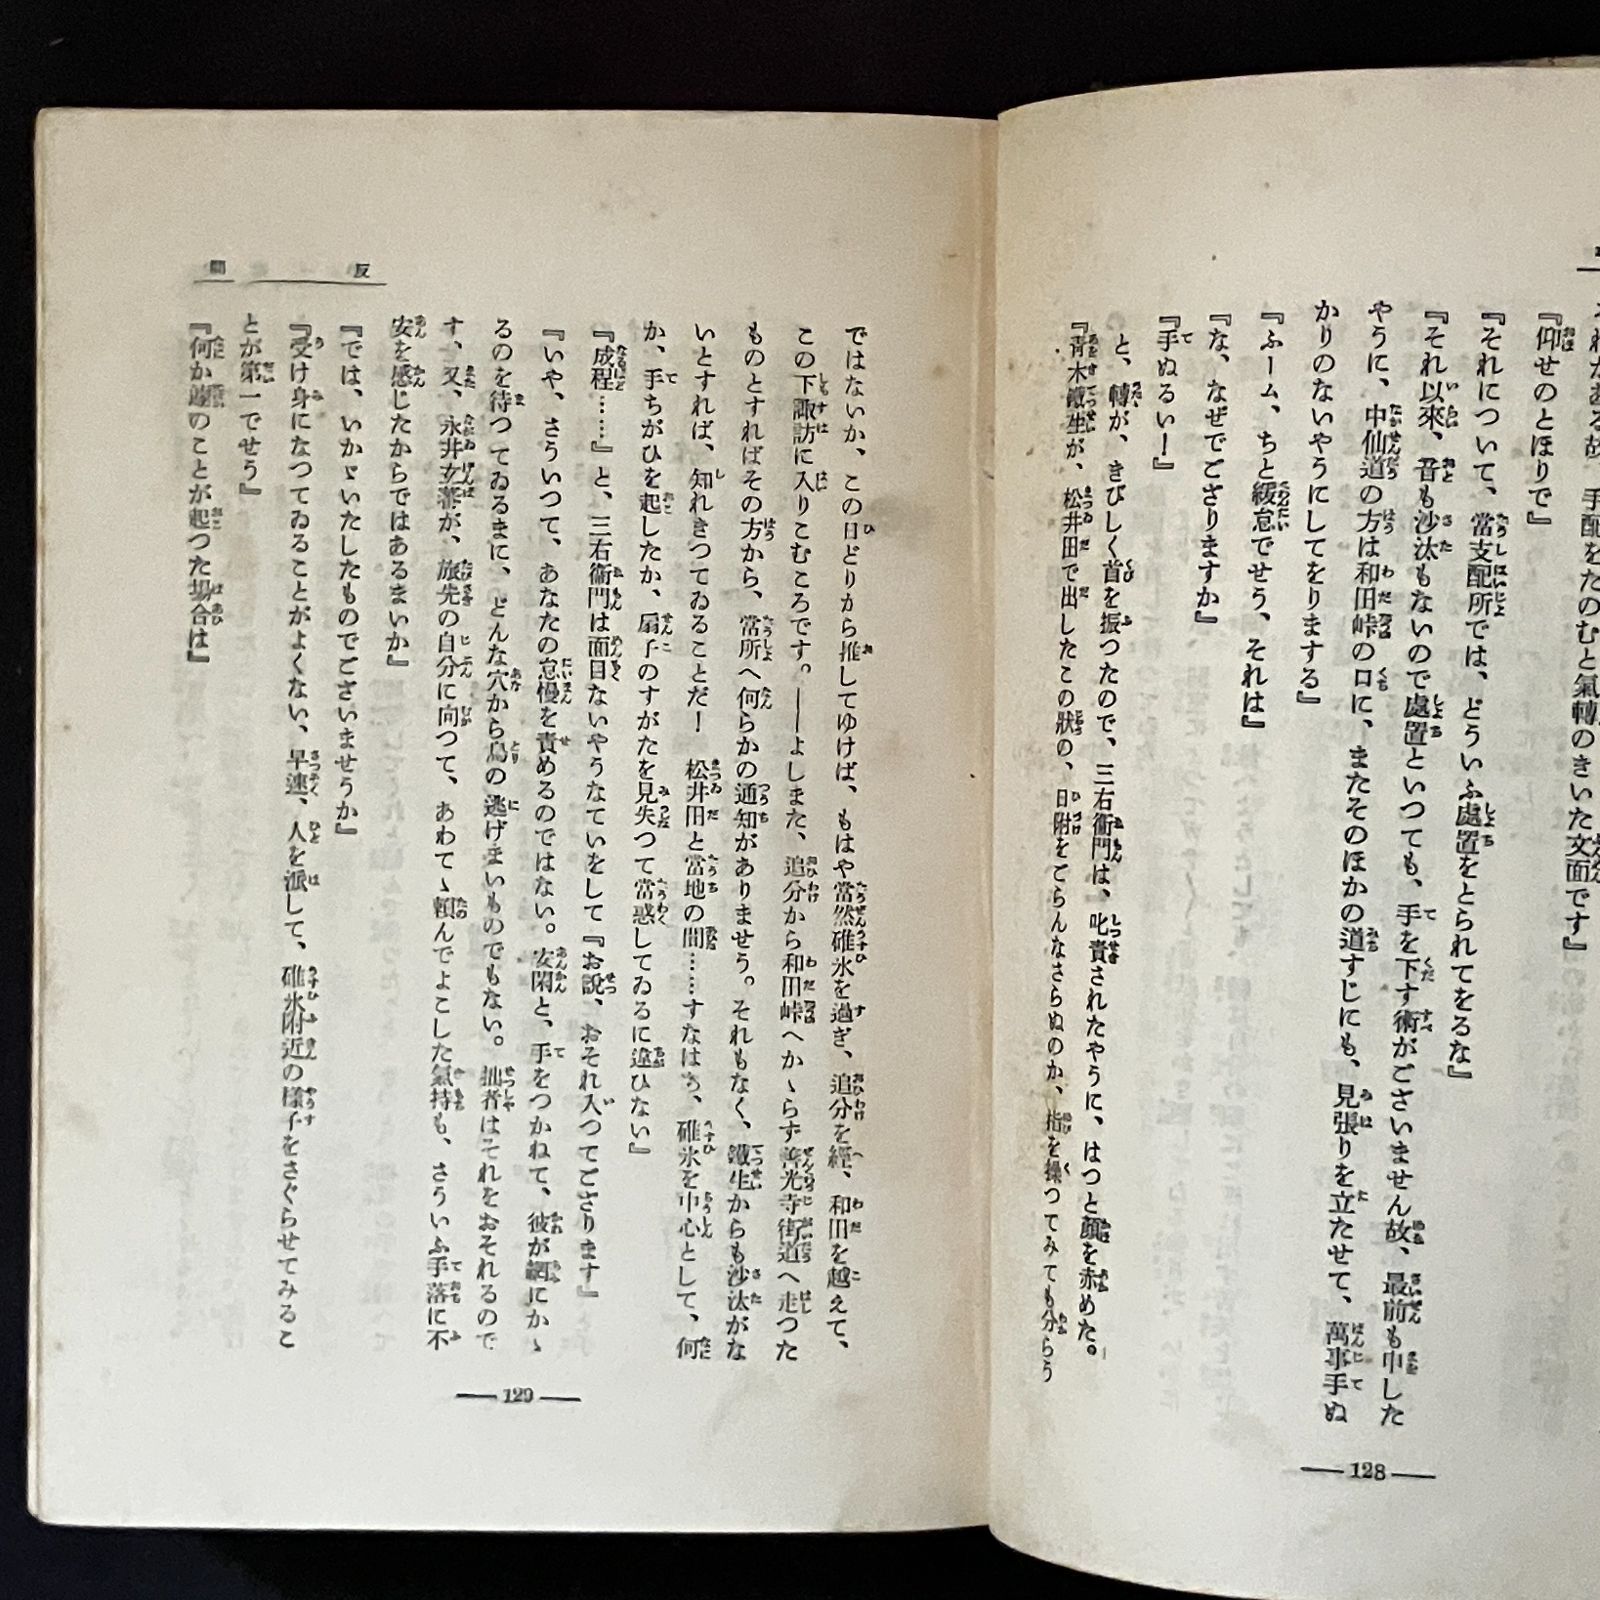 手配をたのむと氣轉のきいた文面です』
『仰せのとほりで』
『それについて、當支配所では、どういふ處置をとられてをるな』
『それ以來、音も沙汰もないので處置といつても、手を下す術がございません故、最前も申した
やうに、中仙道の方は和田峠の口に、またそのほかの道すじにも、見張りを立たせて、萬事手ぬ
かりのないやうにしてをりまする』
『ふーム、ちと緩怠でせう、それは』
『な、なぜでござりますか』
『手ぬるい！』
と、轉が、きびしく首を振つたので、三右衞門は、叱責されたやうに、はつと顏を赤めた。
『青木鐵生が、松井田で出したこの狀の、日附をごらんなさらぬのか、指を操つてみても分らう
128
反間
ではないか、この日どりから推してゆけば、もはや當然碓氷を過ぎ、追分を經、和田を越えて、
この下諏訪に入りこむころです。――よしまた、追分から和田峠へかゝらず善光寺街道へ走つた
ものとすればその方から、當所へ何らかの通知がありませう。それもなく、鐵生からも沙汰がな
いとすれば、知れきつてゐることだ！　松井田と當地の間……すなはち、碓氷を中心として、何
か、手ちがひを起したか、扇子のすがたを見失つて當惑してゐるに違ひない』
『成程……』と、三右衞門は面目ないやうなていをして『お說、おそれ入つてござります』
『いや、さういつて、あなたの怠慢を責めるのではない。安閑と、手をつかねて、彼が網にかゝ
るのを待つてゐるまに、どんな穴から鳥の逃げまいものでもない。拙者はそれをおそれるので
す、又、永井玄蕃が、旅先の自分に向つて、あわてゝ賴んでよこした氣持も、さういふ手落に不
安を感じたからではあるまいか』
『では、いかゞいたしたものでございませうか』
『受け身になつてゐることがよくない、早速、人を派して、碓氷附近の樣子をさぐらせてみるこ
とが第一でせう』
『何か途のことが起つた場合は』
129